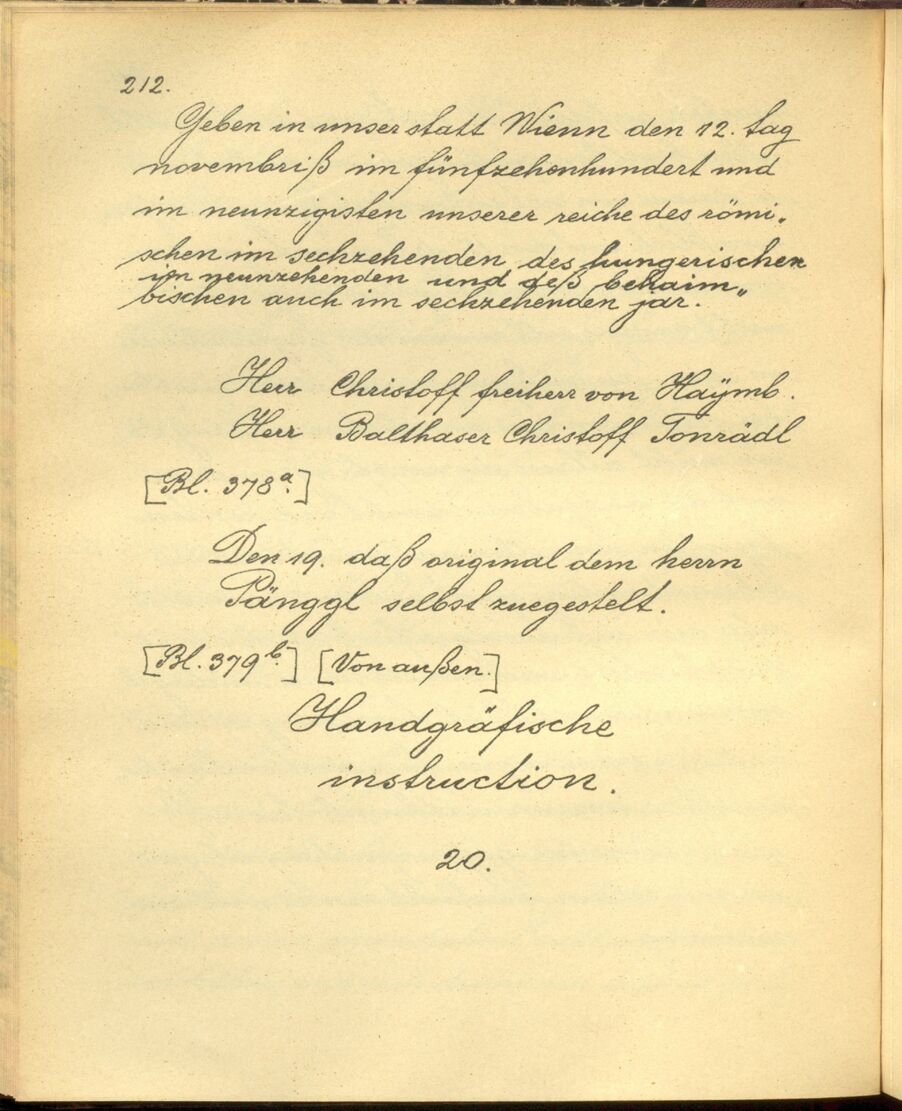 212.
Geben in unser statt Wienn den 12. tag
novembriß im fünfzehenhundert und
im neunzigisten unserer reiche des römi„
schen im sechzehenden des hungerischen
im neunzehenden und deß behaim„
bischen auch im sechzehenden jar.
Herr Christoff freiherr von Haÿmb.
Herr Balthaser Christoff Tonrädl
[Bl. 378a.]
Den 19. daß original dem herrn
Pänggl selbst zuegestelt.
[Bl. 379b.] [Von außen.]
Handgräfische
instruction.
20.